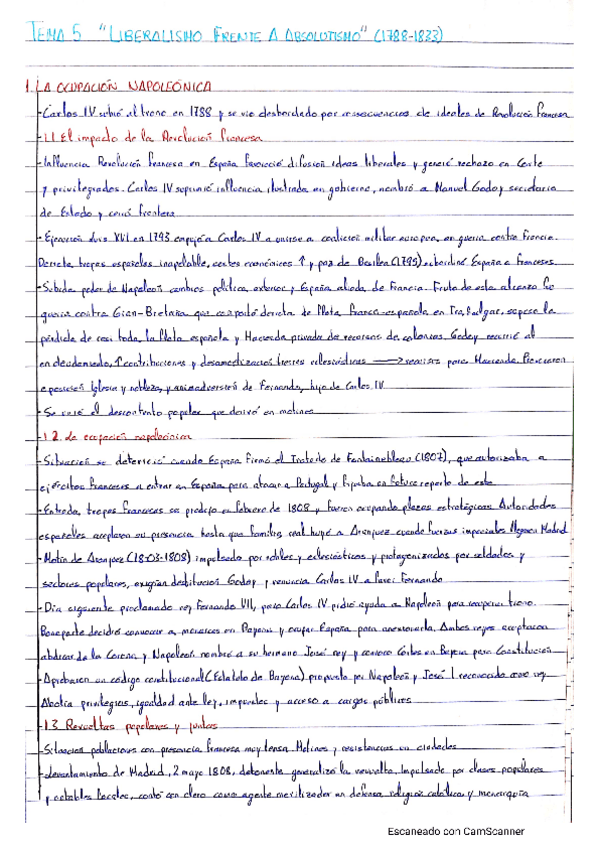 TEMA 5 "LIBERALISMO FRENTE A ABSOLUTISMO" (1788-1833)
1. LA OCUPACIÓN NAPOLEÓNICA
-Carlos IV subió al trono en 1788 y se vio desbordado por consecuencias de ideales de Revolución Francesa
-1.1. El impacto de la Revolución Francesa
-Influencia Revolución Francesa en España favoreció difusión ideas liberales y generó rechazo en Corte
y privilegiados. Carlos IV suprimió influencia ilustrada en gobierno, nombró a Manuel Godoy secretario
de Estado y cerró frontera
-Ejecución Luis XVI en 1793 empujó a Carlos IV a unirse a coalición militar europea, en guerra contra Francia.
Derrota tropas españolas inapelable, costes económicos ↑ y paz de Basilea (1795) subordinó España a franceses.
-Subida poder de Napoleón cambios política exterior y España aliada de Francia. Fruto de esta alianza fue
guerra contra Gran-Bretaña que comportó derrota de flota franco-española en Trafalgar, supone la
pérdida de casi toda la flota española y Hacienda privada de recursos de colonias. Godoy recurrió al
endeudamiento, ↑ contribuciones y desamortización tierras eclesiásticas → recursos para Hacienda. Provocaron
oposición Iglesia y nobleza, y animadversión de Fernando, hijo de Carlos IV
-Se unió el descontento popular que derivó en motines
-1.2. La ocupación napoleónica
-Situación se deterioró cuando España firmó el Tratado de Fontainebleau (1807), que autorizaba a
ejércitos franceses a entrar en España para atacar a Portugal y fijaba en futuro reparto de este
-Entrada tropas francesas se produjo en febrero de 1808 y fueron ocupando plazas estratégicas. Autoridades
españolas aceptaron su presencia hasta que familia real huyó a Aranjuez cuando fuerzas imperiales llegaron Madrid
-Motín de Aranjuez (18-03-1808) impulsado por nobles y eclesiásticos y protagonizado por soldados y
sectores populares, exigían destitución Godoy y renuncia Carlos IV a favor Fernando
-Día siguiente proclamado rey Fernando VII, pero Carlos IV pidió ayuda a Napoleón para recuperar trono.
Bonaparte decidió convocar a monarcas en Bayona y ocupar España para anexionarla. Ambos reyes aceptaron
abdicar de la Corona y Napoleón nombró a su hermano José rey y convocó Cortes en Bayona para Constitución
-Aprobaron un código constitucional (Estatuto de Bayona) propuesto por Napoleón y José I reconocido como rey
Abolía privilegios, igualdad ante ley, impuestos y acceso a cargos públicos
-1.3 Revueltas populares y juntas
-Situación poblaciones con presencia francesa muy tensa. Motines y resistencias en ciudades
-Levantamiento de Madrid, 2 mayo 1808, detonante generalizó la revuelta. Impulsada por clases populares
y notables locales, contó con clero como agente movilizador en defensa religión católica y monarquía
Escaneado con CamScanner